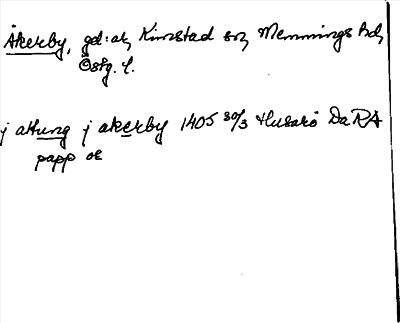 Åkerby, gd: ar, Kimstad sn, Memmings hd,
Östg. l.
j attung j akerby 1405 30/3 Husarö Da RA
papp or